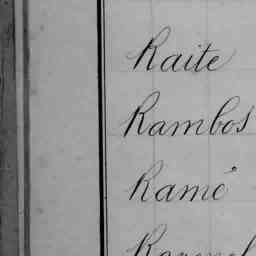 Raite
Rambos
Ramé